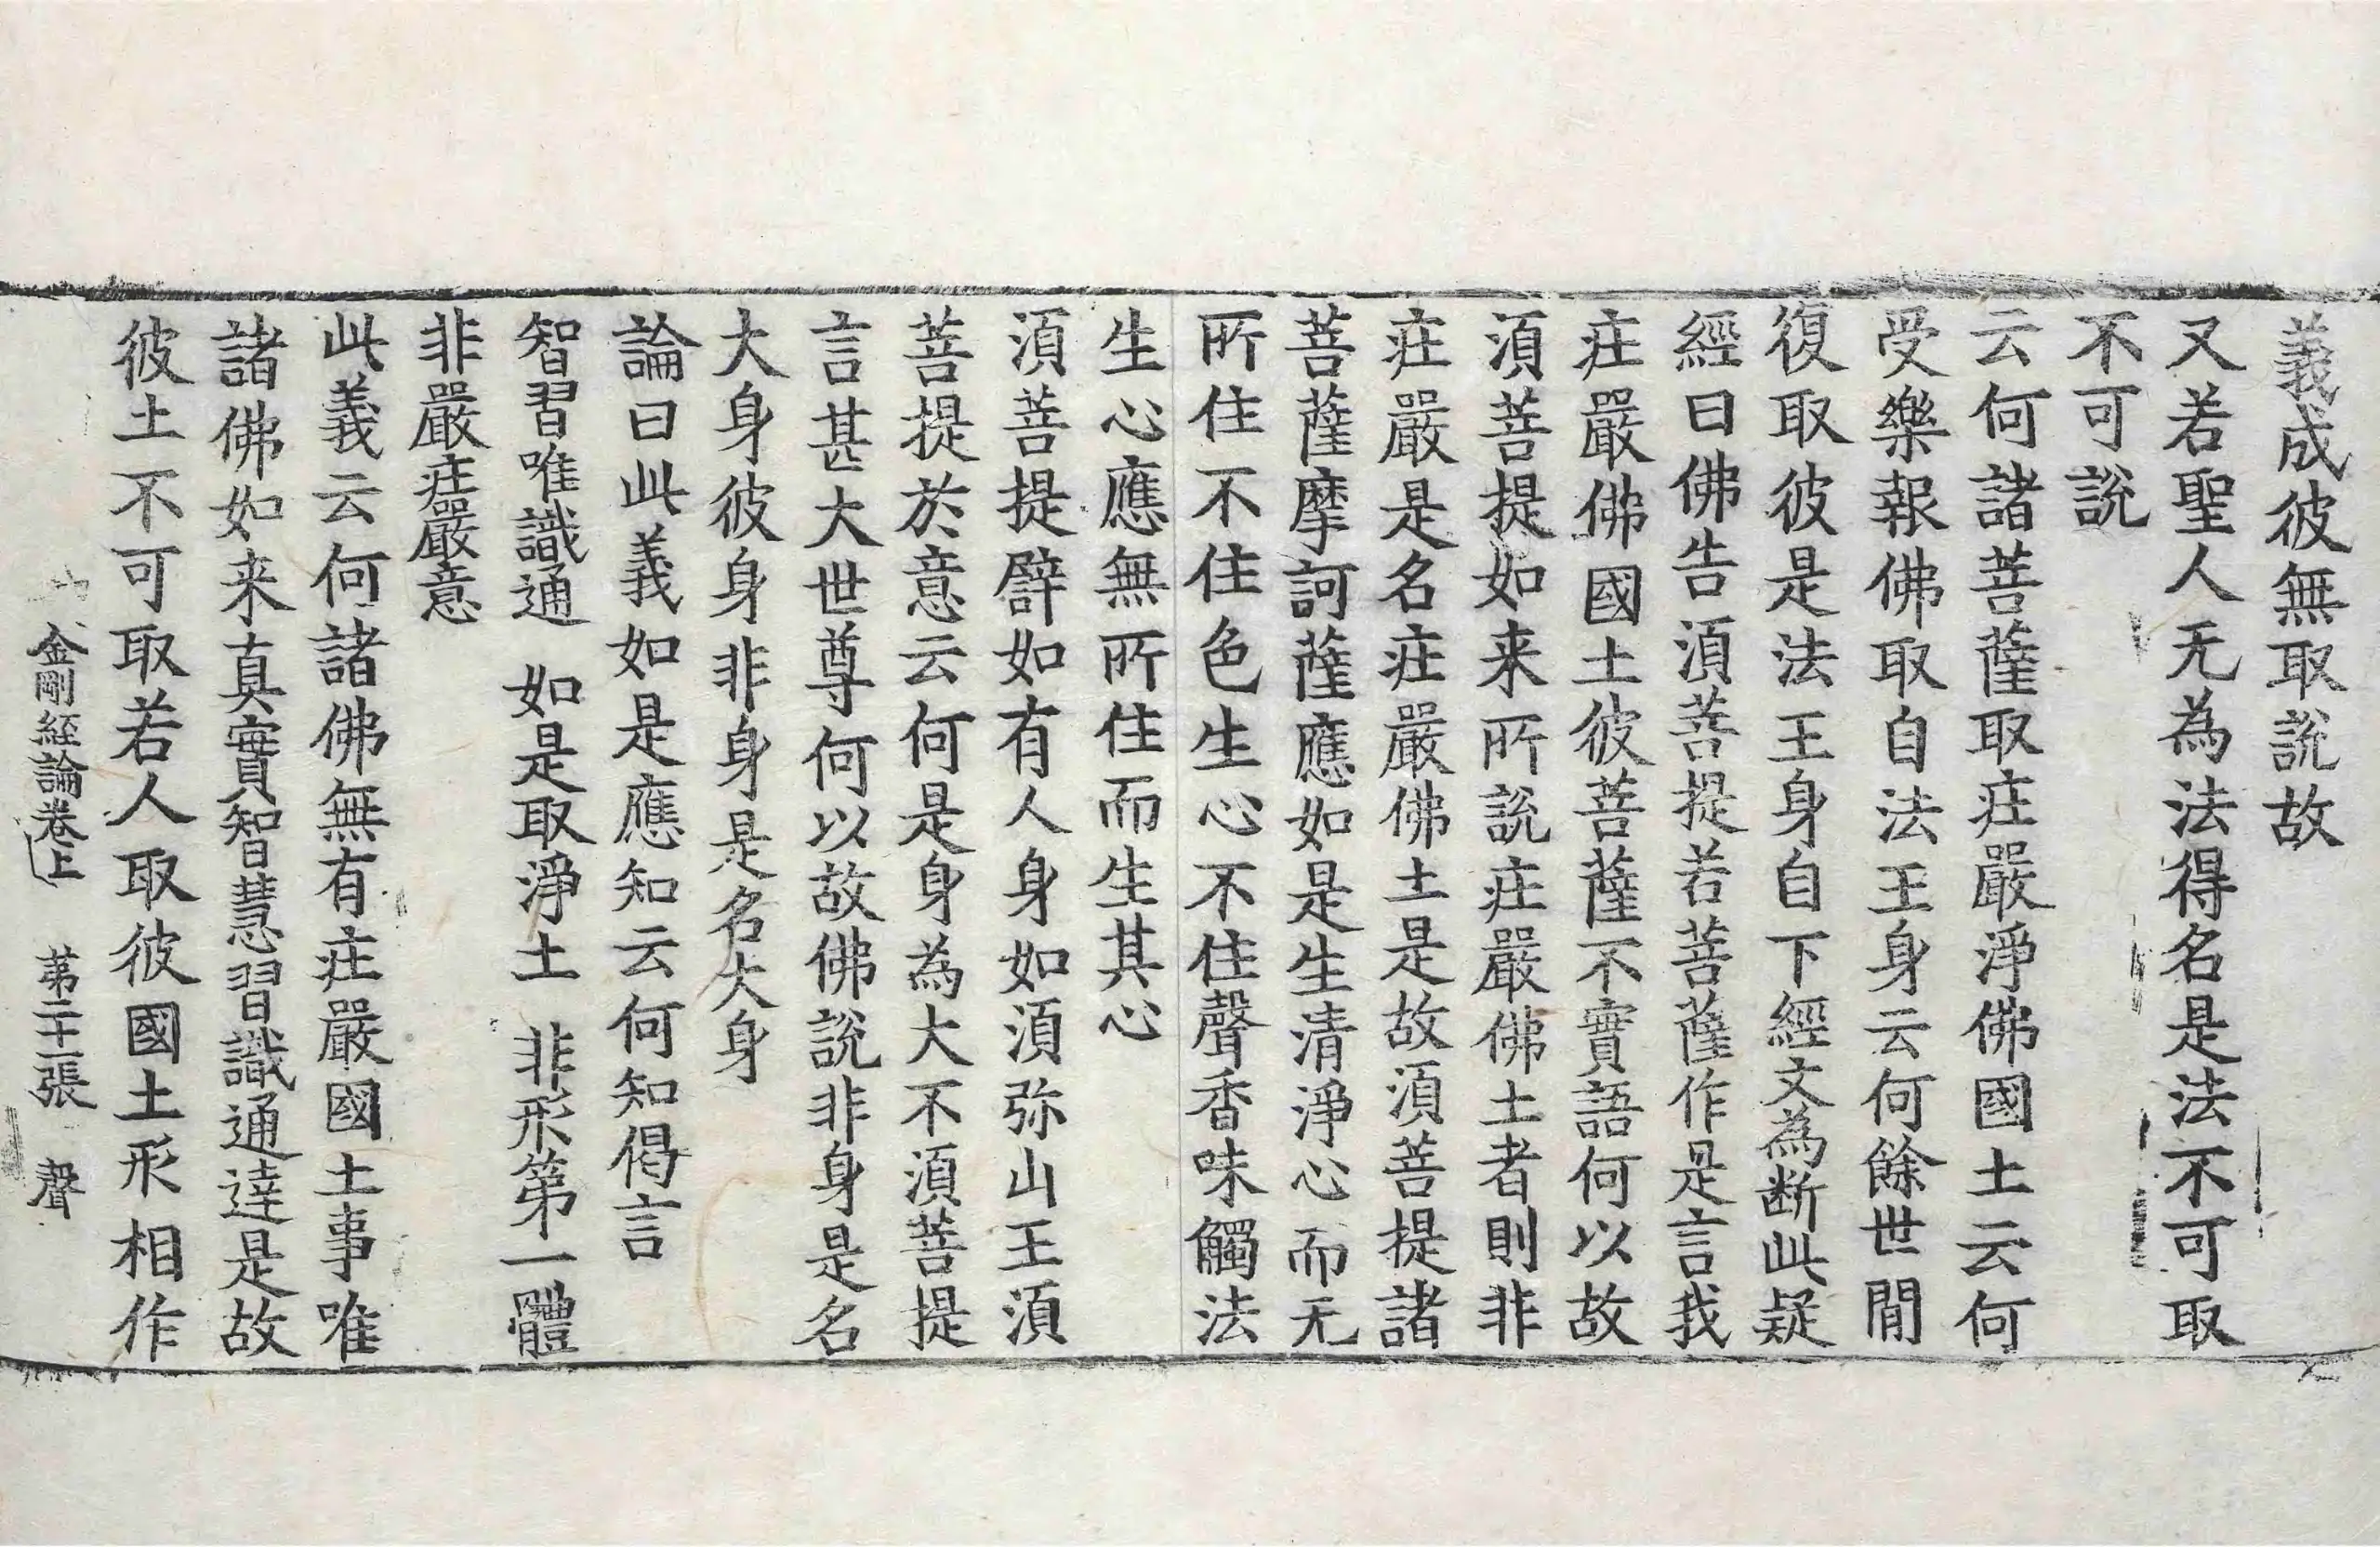 義成彼無取說故
又若聖人无為法得名是法不可取
不可說
云何諸菩薩取莊嚴淨佛國土云何
受樂報佛取自法王身云何餘世間
復取彼是法王身自下經文為断此疑
經曰佛告須菩提若菩薩作是言我
莊嚴佛國土彼菩薩不實語何以故
須菩提如来所說莊嚴佛土者則非
莊嚴是名莊嚴佛土是故須菩提諸
菩薩摩訶薩應如是生清淨心而无
所住不住色生心不住聲香味觸法
生心應無所住而生其心
須菩提譬如有人身如須弥山王須
菩提於意云何是身為大不須菩提
言甚大世尊何以故佛說非身是名
大身彼身非身是名大身
論曰此義如是應知云何知偈言
智習唯識通 如是取淨土 非形第一體
非嚴莊嚴意
此義云何諸佛無有莊嚴國土事唯
諸佛如来真實智慧習識通達是故
彼土不可取若人取彼國土形相作
金剛經論卷上 苐二十一張 聲